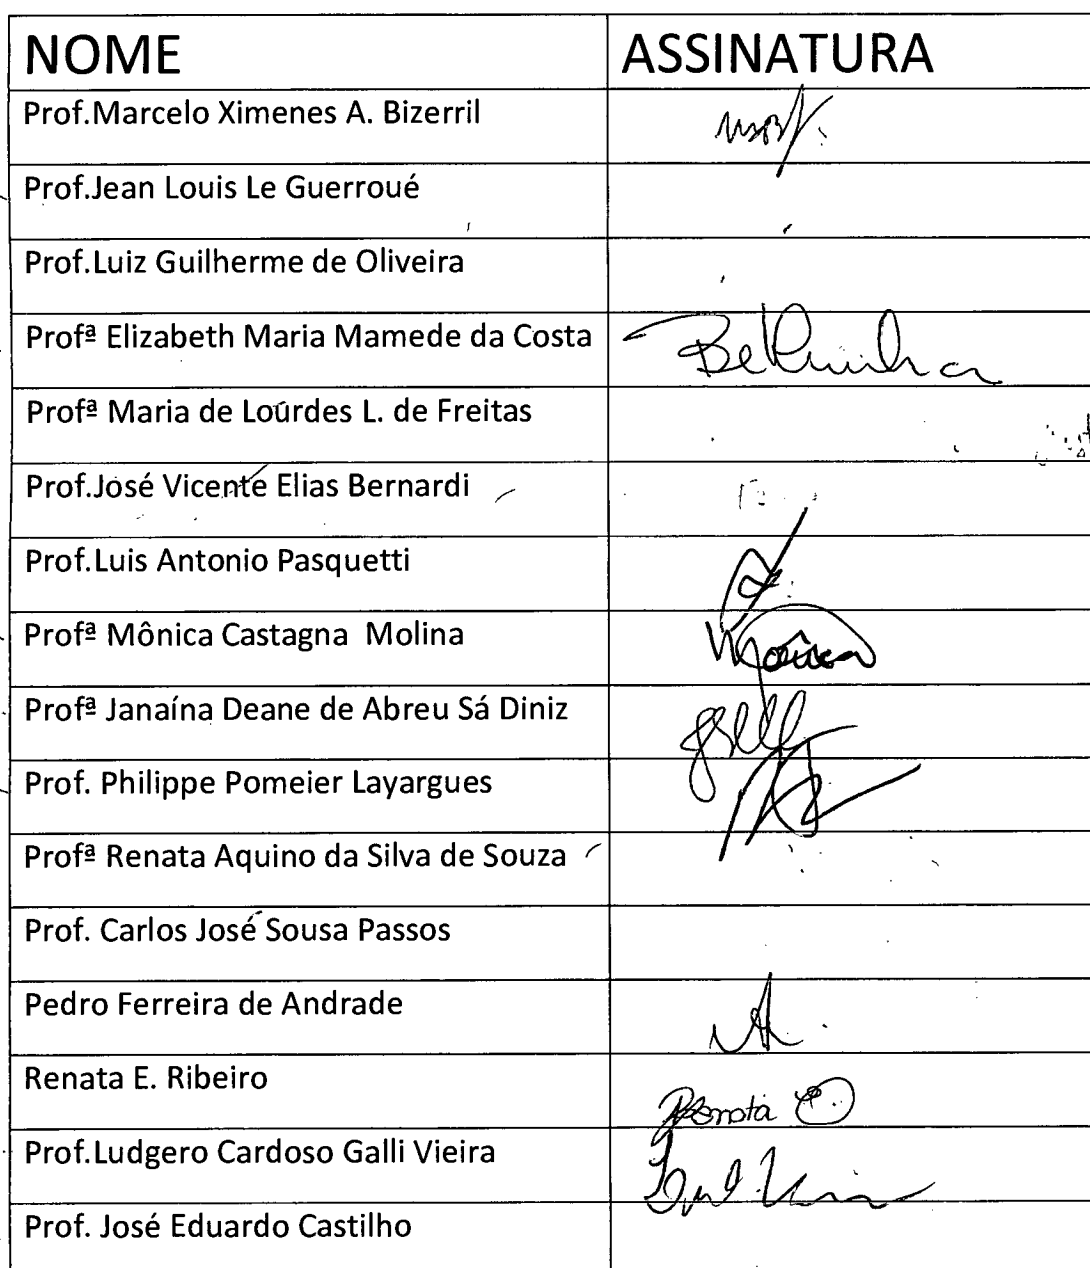 NOME ASSINATURA
Prof.Marcelo Ximenes A. Bizerril
Prof.Jean Louis Le Guerroué
Prof.Luiz Guilherme de Oliveira
Profª Elizabeth Maria Mamede da Costa
Profª Maria de Lourdes L. de Freitas
Prof.José Vicente Elias Bernardi
Prof.Luis Antonio Pasquetti
Profª Mônica Castagna Molina Mônica
Profª Janaína Deane de Abreu Sá Diniz
Prof. Philippe Pomeier Layargues
Profª Renata Aquino da Silva de Souza
Prof. Carlos José Sousa Passos
Pedro Ferreira de Andrade
Renata E. Ribeiro Renata E.
Prof.Ludgero Cardoso Galli Vieira
Prof. José Eduardo Castilho